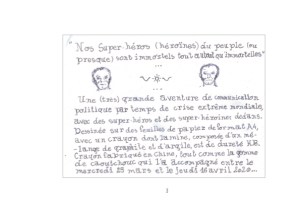 Nos super-héros (héroïnes) du peuple (ou
presque) sont immortels tout autant qu'immortelles"
Une (très) grande aventure de communication
politique par temps de crise extrême mondiale,
avec des super-héros et des super-héroïnes dedans.
Dessinée sur des feuilles de papier de format A4,
avec un crayon dont la mine, composée d'un mé-
lange de graphite et d'argile, est de dureté HB.
Crayon fabriqué en Chine, tout comme la gomme
de caoutchouc qui l'a accompagné entre le
mercredi 18 mars et le jeudi 16 avril 2020...
1